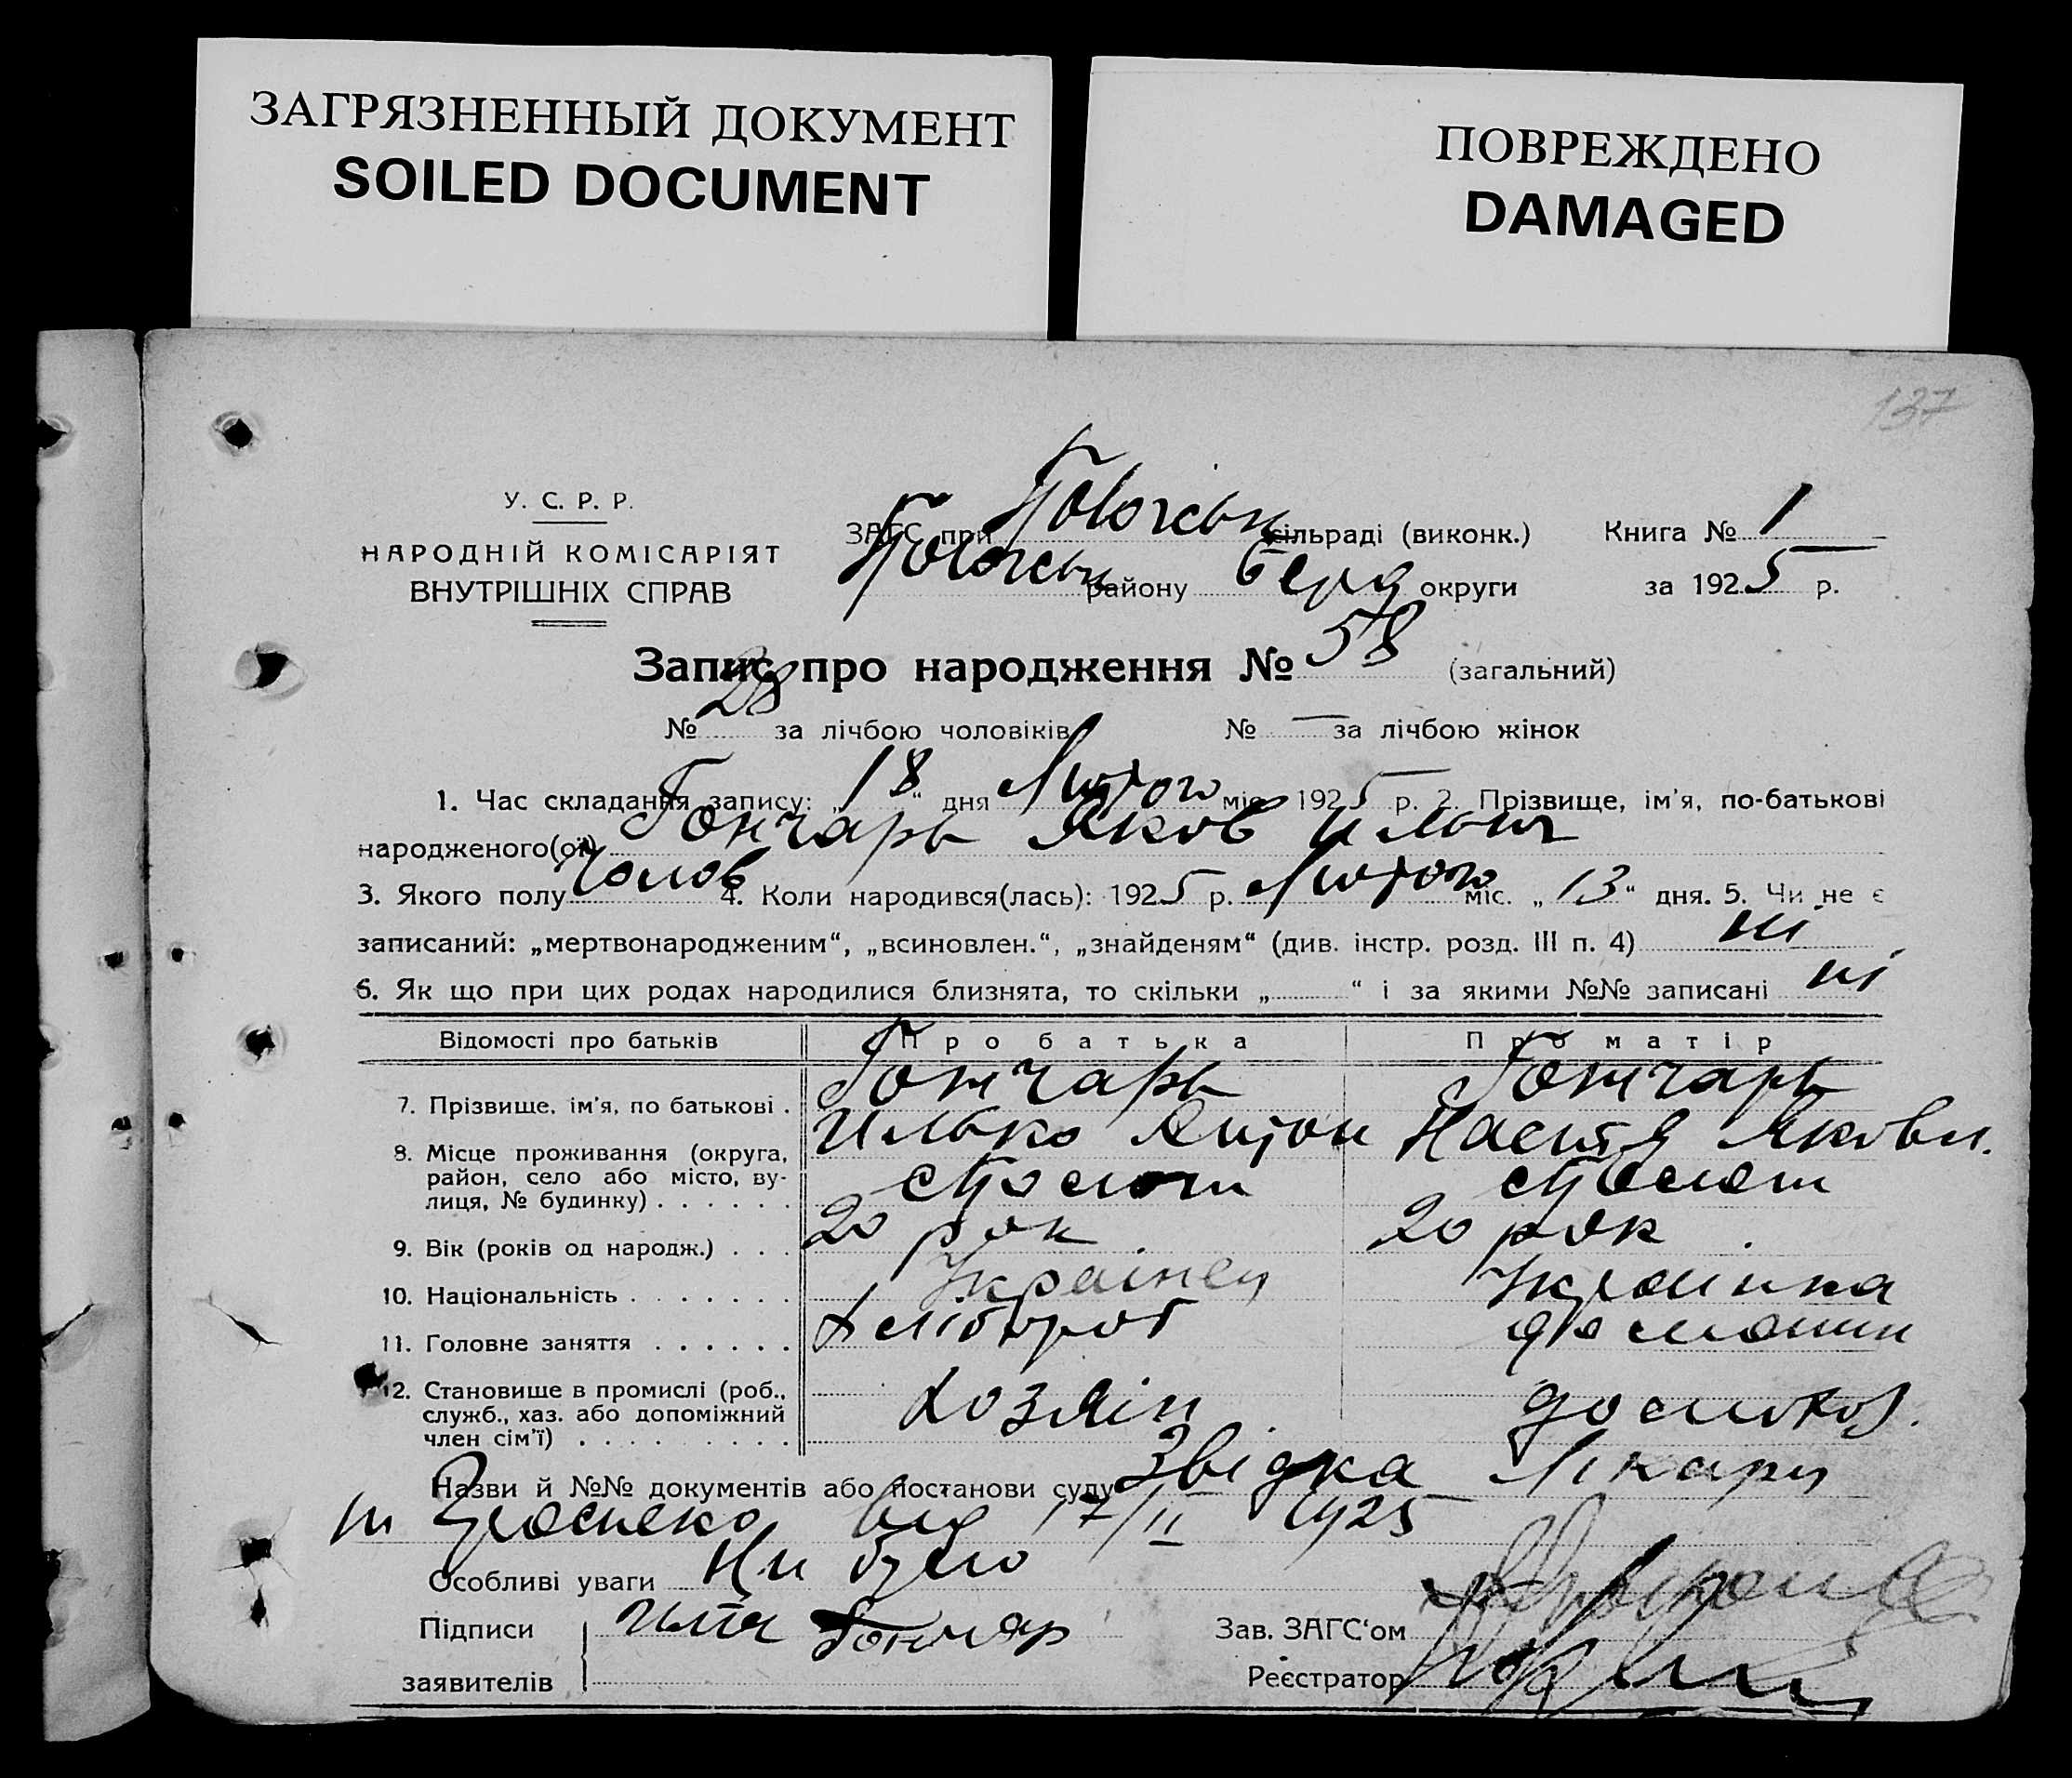 ЗАГРЯЗНЕННЫЙ ДОКУМЕНТ
SOILED DOCUMENT
ПОВРЕЖДЕНО
DAMAGED
137
У. С. Р. Р.
НАРОДНІЙ КОМІСАРІЯТ
ВНУТРІШНІХ СПРАВ
ЗАГС при сільраді (виконк.) Книга № 1
району Берд округи за 1925 р.
Запис про народження № 58 (загальний)
№ 28 за лічбою чоловіків № — за лічбою жінок
1. Час складання запису: „18“ дня Лютого міс. 1925 р. 2. Прізвище, ім'я, по-батькові
народженого(ої) Гончарь Яков Ильич
3. Якого полу Чолов 4. Коли народився(лась): 1925 р. Лютого міс. „13“ дня. 5. Чи не є
записаний: „мертвонародженим“, „всиновлен.“, „знайденям“ (див. інстр. розд. III п. 4) ні
6. Як що при цих родах народилися близнята, то скільки „ “ і за якими №№ записані ні
Відомості про батьків Про батька Про матір
7. Прізвище, ім'я, по батькові . Гончарь Илько Антон Гончарь Настя Яковн.
8. Місце проживання (округа, район, село або місто, вулиця, № будинку) . . . . . .
9. Вік (років од народж.) . . . 20 рок 20 рок.
10. Національність . . . . . . . Українец Українка
11. Головне заняття . . . . . . Хлібороб домашн
12. Становище в промислі (роб., служб., хаз. або допоміжний член сім'ї) . . . . . . . . . Хозяїн
Назви й №№ документів або постанови суду Звідка Лікаря
від 17/II 1925
Особливі уваги Ни було
Підписи Гончар
заявителів
Зав. ЗАГС'ом
Реєстратор